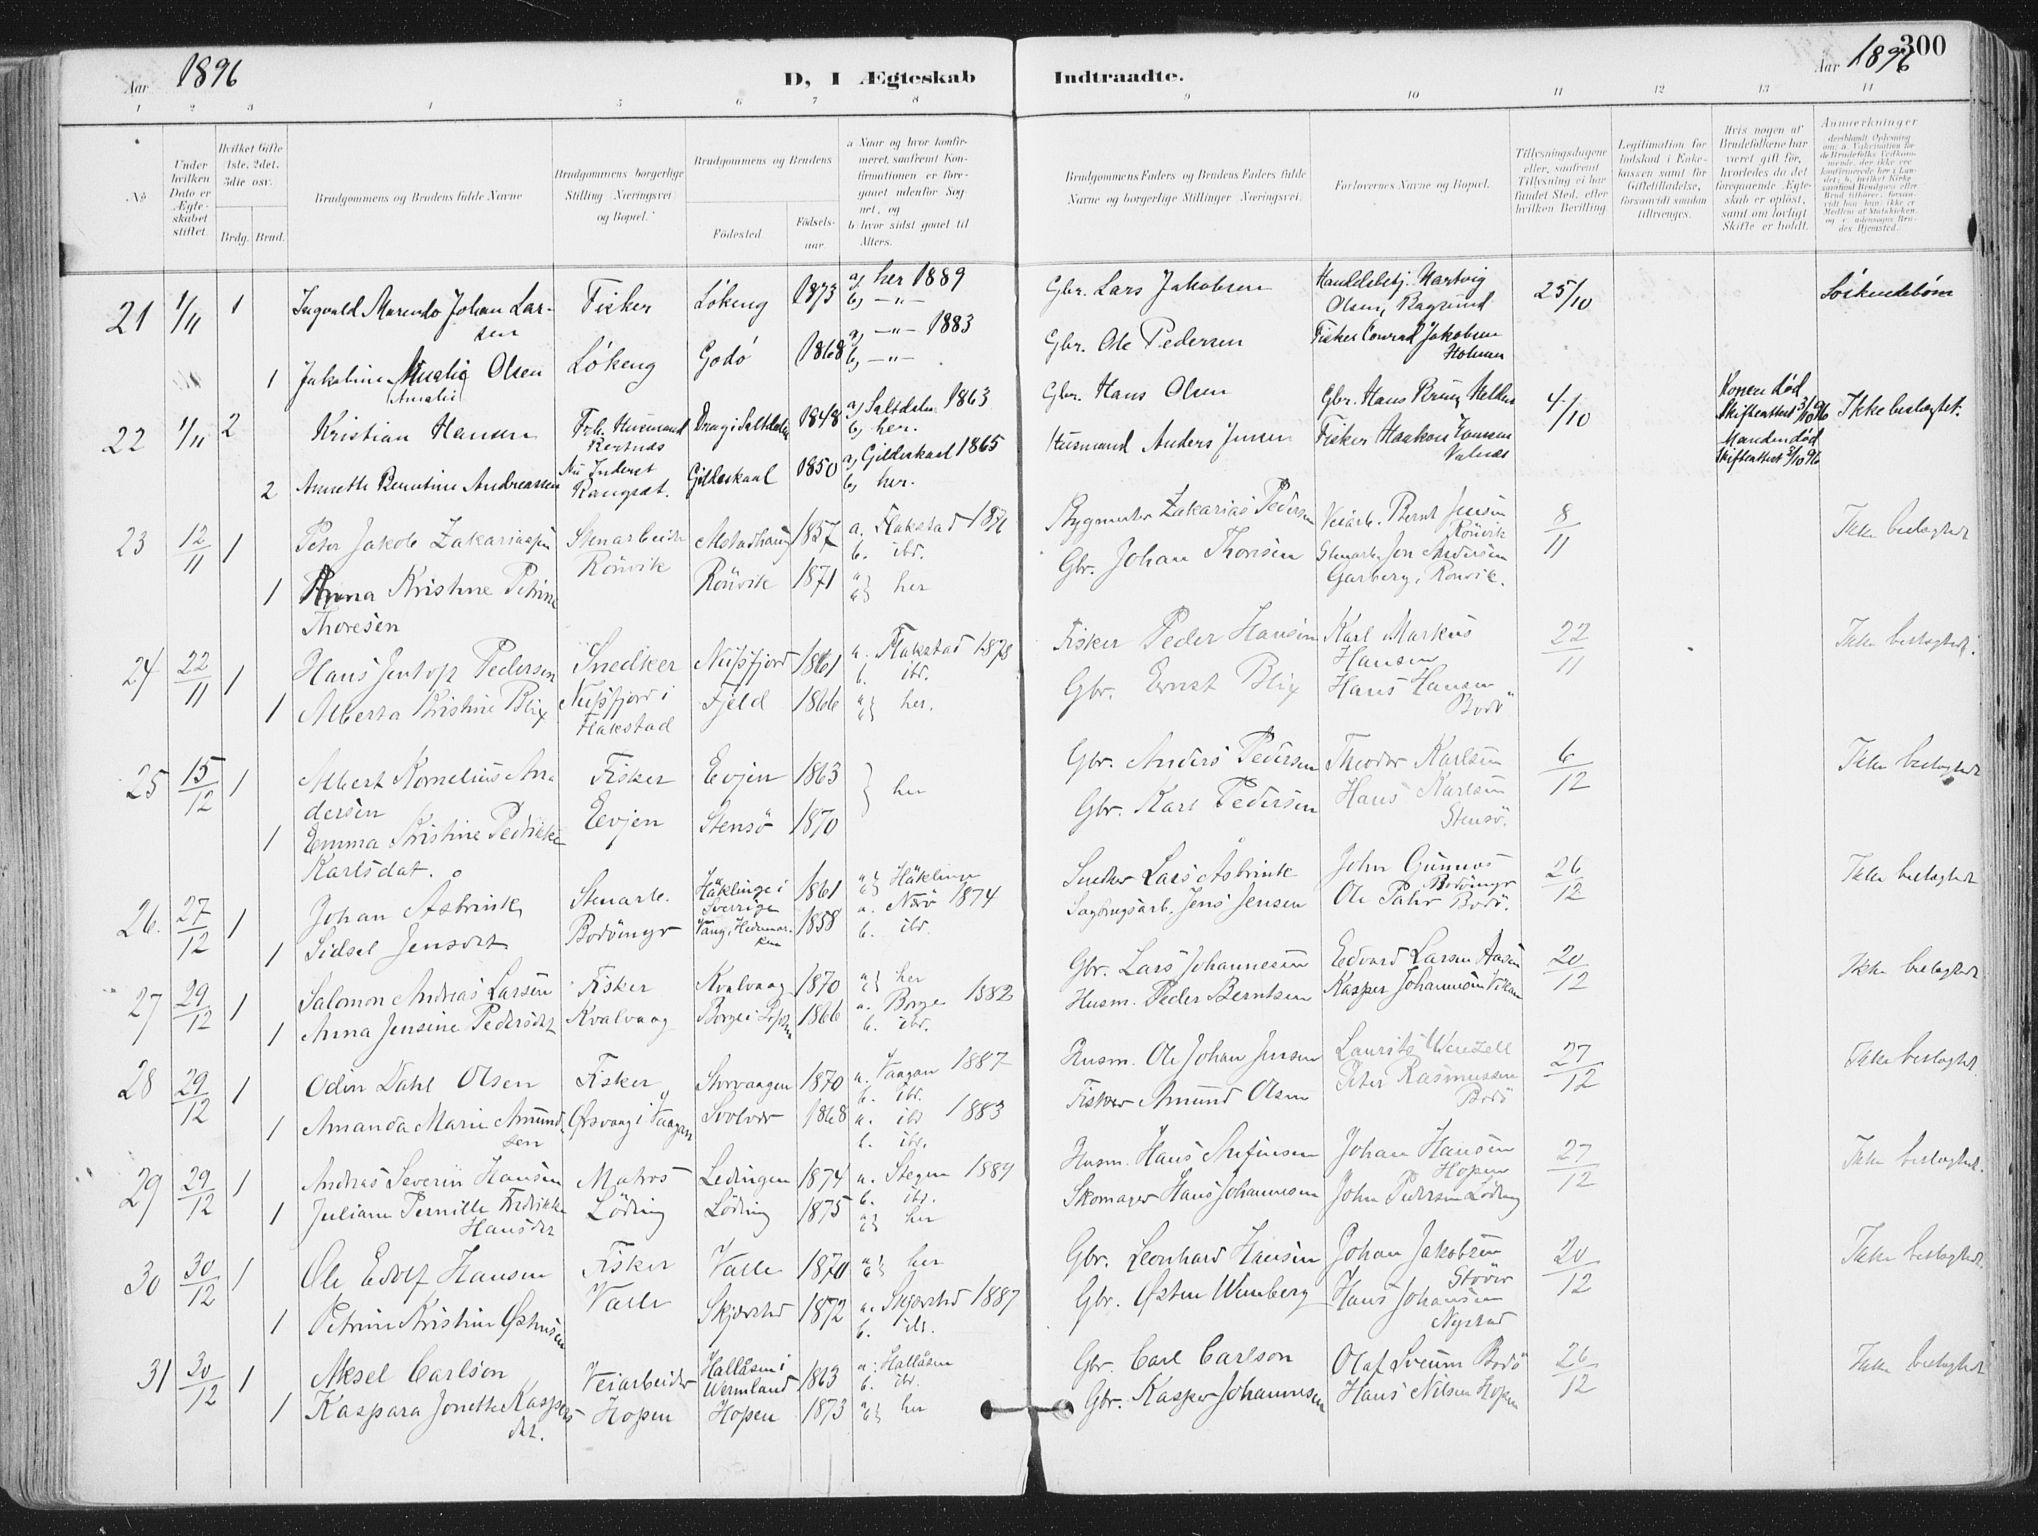 Aar 1896
D, I Ægteskab
Indtraadte.
Aar 1896
300
1 2 3 4 5 6 7 8 9 10 11 12 13 14
No
Under hvilken Dato er Ægteskabet stiftet.
Hvilket Gifte 1ste, 2det, 3die osv.
Brdg. Brud.
Brudgommens og Brudens fulde Navne
Brudgommens borgerlige Stilling (Næringsvei) og Bopæl.
Brudgommens og Brudens
Fødested.
Fødselsaar.
a Naar og hvor konfirmeret, saafremt Konfirmationen er foregaaet udenfor Sognet, og
b hvor sidst gaaet til Alters.
Brudgommens Faders og Brudens Faders fulde Navne og borgerlige Stillinger (Næringsvei.
Forlovernes Navne og Bopæl.
Tillysningsdagene eller, saafremt Tillysning ei har fundet Sted, efter hvilken Bevilling
Legitimation for Indskud i Enkekassen samt for Giftetilladelse, forsaavidt saadan tiltrænges.
Hvis nogen af Brudefolkene har været gift før, hvorledes da det foregaaende Ægteskab er opløst, samt om lovligt Skifte er holdt.
Anmerkninger
21 1/11 1 Ingvald Marendo Johan Larsen Fisker Løkeng 1873 a, her 1889 b, —"— Gbr. Lars Jakobsen Handelsbetj. Hartvig Olsen, Bagsund 25/10 Søskendebørn
1 Jakobine Amalie Olsen Løkeng Godø 1868 a, —"— 1883 b, —"— Gbr. Ole Pedersen Fisker Conrad Jakobsen Holmen
22 1/11 2 Kristian Hansen Husmand 1848 a, Saltdalen 1863 b, her. Gbr. Hans Olsen 4/10 Konen død Skifteattest 3/10 96 Ikke beslægtet.
2 Annette Berntine Andreassen Gildeskaal 1850 a, Gildeskaal 1865 b, her. Husmand Anders Jensen Fisker Haakon Valnes Manden død Skifteattest 3/10 96
23 12/11 1 Peter Jakob Zakariassen Stenarbeider Alstadhaug 1857 a. Flakstad b. ibd. Bygmester Zakarias Pedersen Veiarb. Bernt Jensen Rönvik 8/11 Ikke beslægtede
1 Anna Kristine Petrine Thoresen Rönvik Rönvik 1871 a} b} her Gbr. Johan Thoresen Stenarb. Jon Andersen Garberg, Rönvik.
24 22/11 1 Hans Jentoft Pedersen Snedker Nussfjord 1861 a. Flakstad 1878 b. ibd. Fisker Peder Hansen Karl Markus Hansen 22/11 Ikke beslægtede.
1 Alberta Kristine Blix Nussfjord i Flakstad Fjeld 1866 a} b} her. Gbr. Ernst Blix Hans Hansen Bodö
25 15/12 1 Albert Kornelius Andersen Fisker Evjen 1863 } her Gbr. Anders Pedersen Theodor Karlsen 6/12 Ikke beslægtede
1 Emma Kristine Pedrikke Karlsdat. Eevjen Stensö 1870 Gbr. Karl Pedersen Hans Karlsen Stensö.
26. 27/12 1 Johan Åsbrink Stenarb. Häklinge i Sverrige 1861 a} b} Häklinge Snedker Lars Åsbrink John Gunnes Bodömyr 26/12 Ikke beslægtede
1 Sidsel Jensdat Bodömyr Vang, Hedemarken 1858 a. Nærö 1874 b. ibd. Sagbrugsarb. Jens Jensen Ole Bodö.
27 29/12 1 Salomon Andreas Larsen Fisker Kvalvaag 1870 a} b} her Gbr. Lars Johannesen Edvard Larsen Aasen 20/12 Ikke beslægtede
1 Anna Jensine Pedersdat Kvalvaag Borge i Lofoten 1866 a. Borge 1882 b. ibd. Husm. Peder Berntsen Kasper Johannesen Vikan
28 29/12 1 Odin Dahl Olsen Fisker Storvaagen 1870 a. Vaagan 1887 b. ibd. Husm. Ole Johan Jensen Laurits Wenzell 27/12 Ikke beslægtede.
1 Amanda Marie Amundsen Ørsvaag i Vaagan Svolvær 1868 a. ibd 1883 b. ibd. Fisker Amund Olsen Peter Rasmussen Bodö
29 29/12 1 Andreas Severin Hansen Matros Lødingen 1874 a. Stegen 1889 b. ibd. Husm. Hans Steffensen Johan Hansen Hopen 27/12 Ikke beslægtede.
1 Juliane Pernille Fredrikke Hansdat Löding Löding 1875 a} b} her Skomager Hans Johannesen John Petersen Löding
30 30/12 1 Ole Edolf Hansen Fisker Valle 1870 a} b} her Gbr. Leonhard Hansen Johan Jakobsen Stöver 20/12 Ikke beslægtede.
1 Petrine Kristine Østensen Valle Skjerstad 1872 a. Skjerstad 1887 b. ibd. Gbr. Østen Wenberg Hans Johansen Nystad
31 30/12 1 Aksel Carlson Veiarbeider Hallåsen i Wermland 1863 a. Hallåsen b. ibd. Gbr. Carl Carlson Olaf Sveum Bodö 26/12 Ikke beslægtede
1 Kaspara Jonette Kaspersdat. Hopen Hopen 1873 a} b} her Gbr. Kasper Johannesen Hans Nilsen Hopen